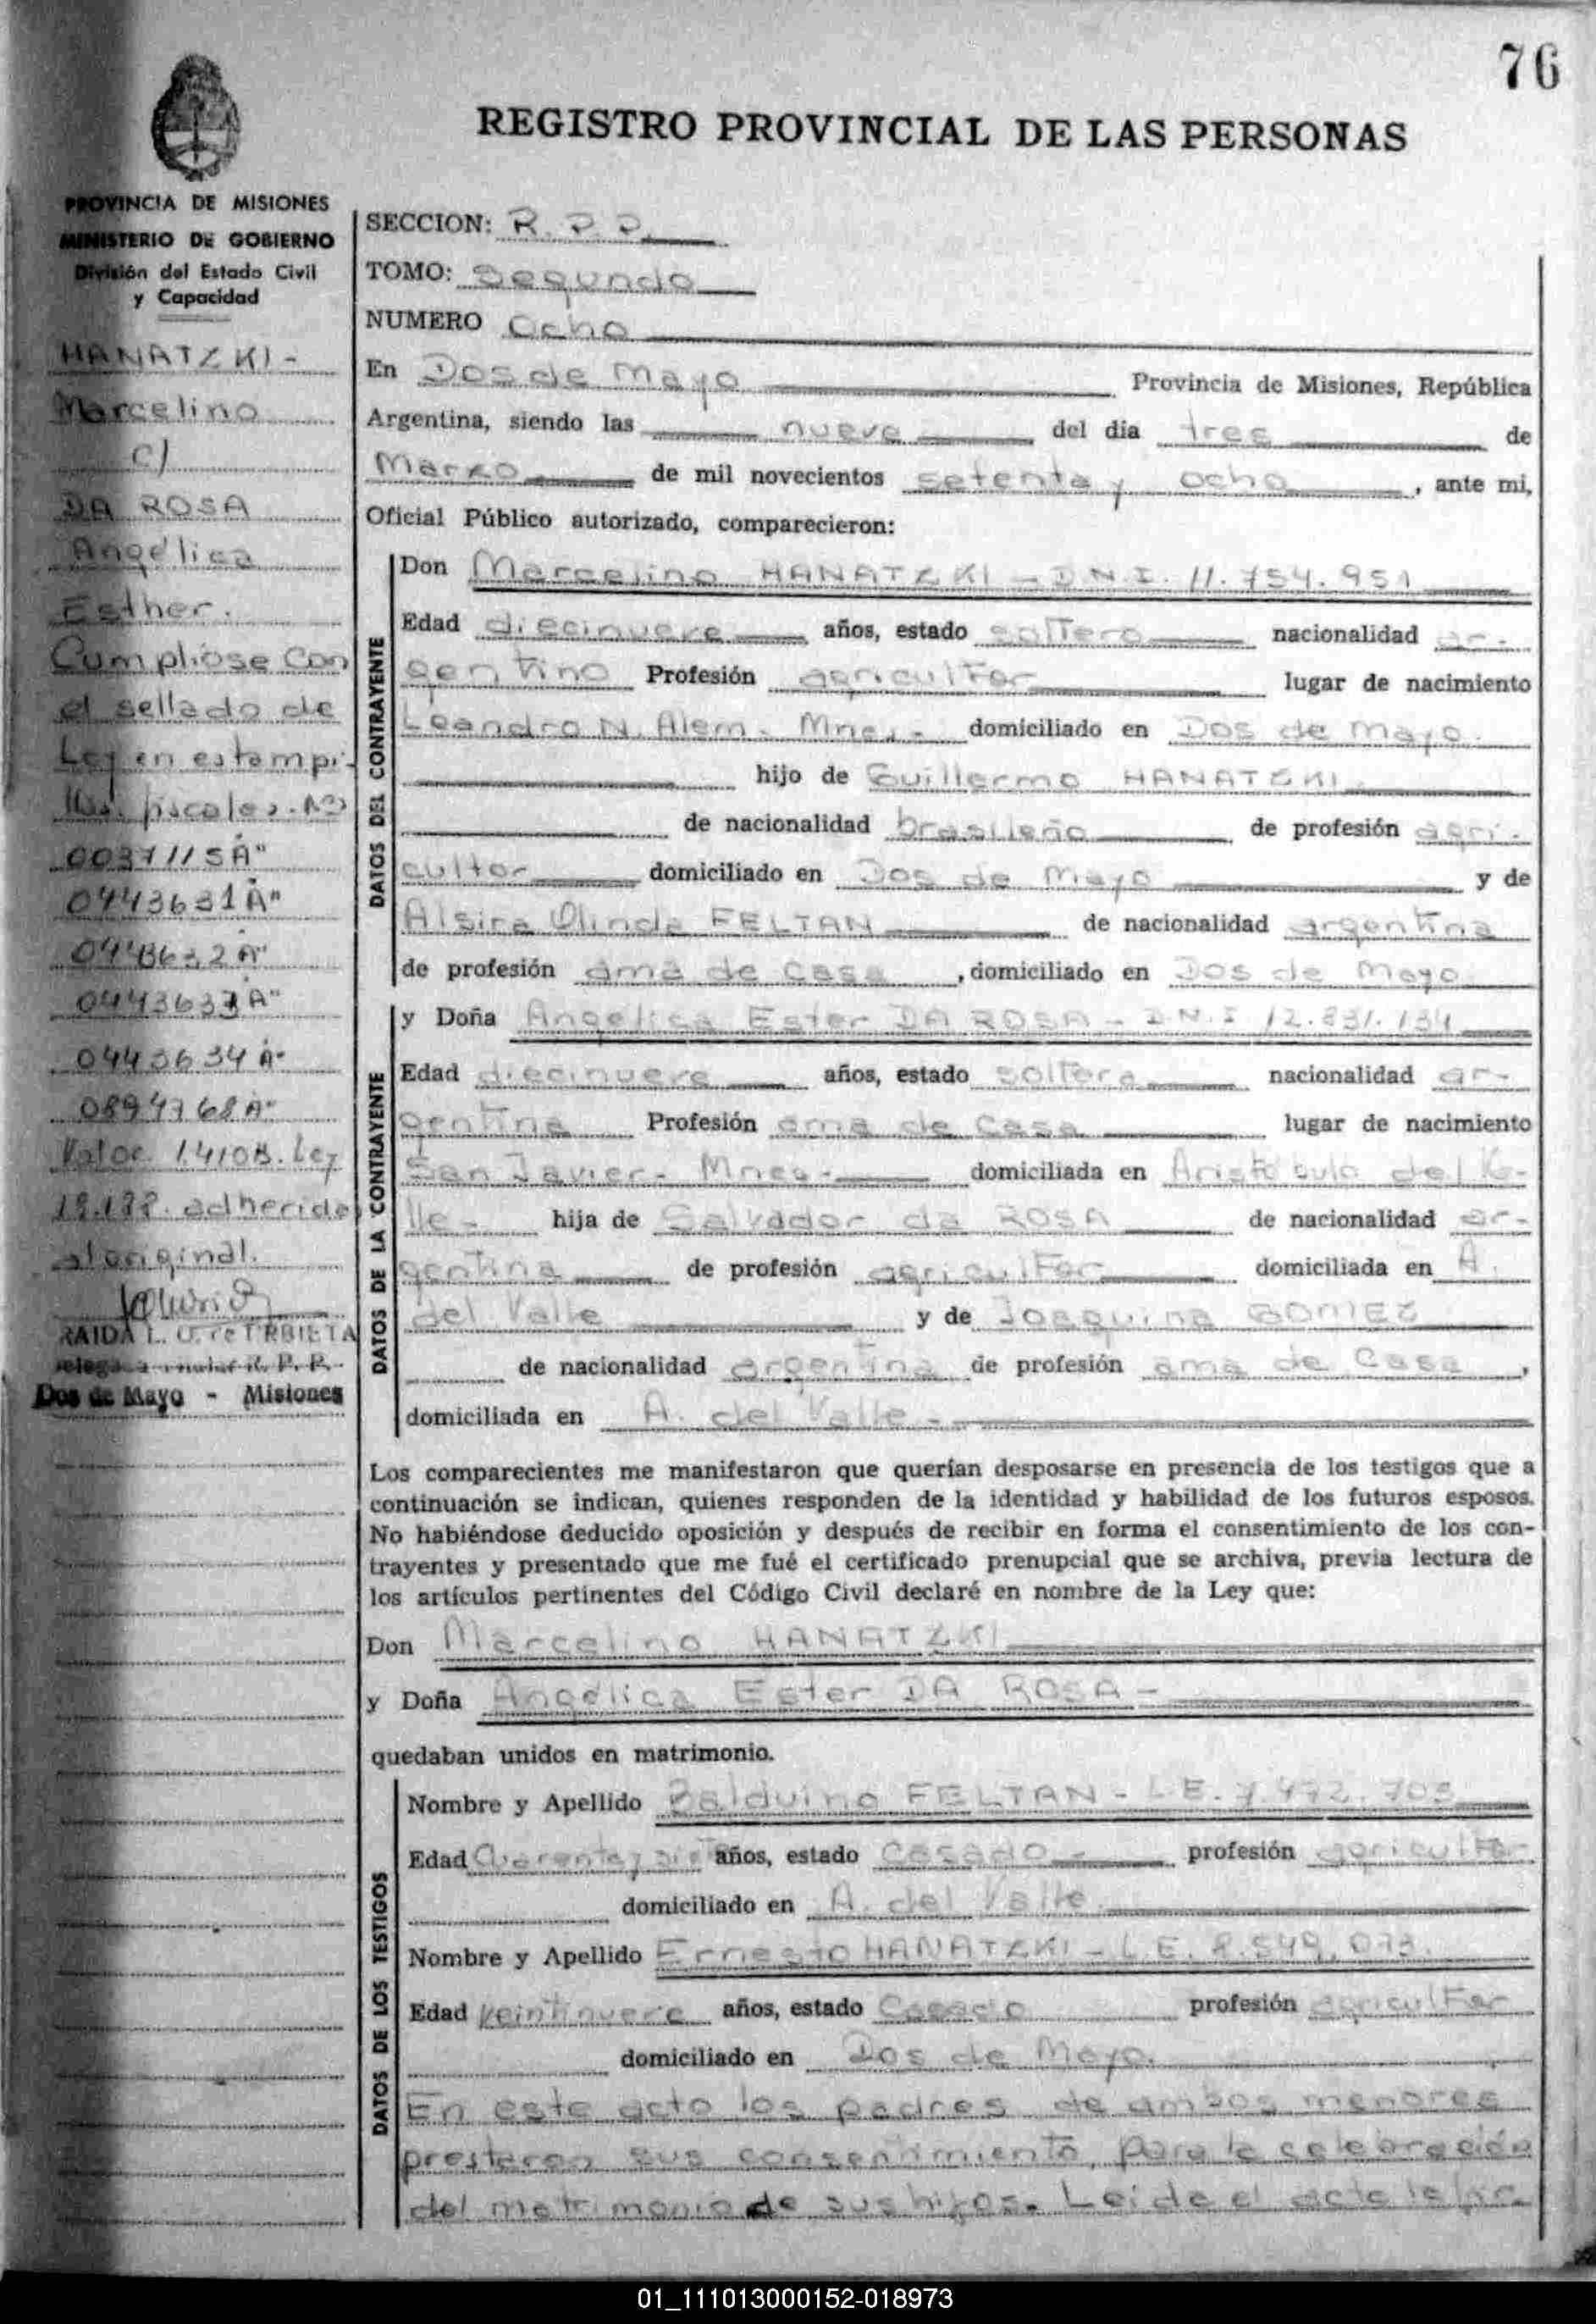 76
REGISTRO PROVINCIAL DE LAS PERSONAS
PROVINCIA DE MISIONES
MINISTERIO DE GOBIERNO
División del Estado Civil
y Capacidad
HANATZKI-
Marcelino
c/
DA ROSA
Angélica
Esther.
Cumpliose con
el sellado de
Ley en estampi-
llas fiscales. Nº
0443631 A"
0443634 A"
Valor Ley
adherido
al original.
Dos de Mayo - Misiones
SECCION: R. P. P.
TOMO: Segundo
NUMERO Ocho
En Dos de Mayo Provincia de Misiones, República
Argentina, siendo las nueve del día tres de
Marzo de mil novecientos setenta y ocho, ante mi,
Oficial Público autorizado, comparecieron:
DATOS DEL CONTRAYENTE
Don Marcelino HANATZKI - D N I. 11.754.951
Edad diecinueve años, estado soltero nacionalidad ar-
gentino Profesión agricultor lugar de nacimiento
Leandro N. Alem - Mnes.- domiciliado en Dos de Mayo.
hijo de Guillermo HANATZKI
de nacionalidad brasileño de profesión agri-
cultor domiciliado en Dos de Mayo y de
Alsira Olinda FELTAN de nacionalidad argentina
de profesión ama de casa, domiciliado en Dos de Mayo
DATOS DE LA CONTRAYENTE
y Doña Angelica Ester DA ROSA - D.N.I
Edad diecinueve años, estado soltera nacionalidad ar-
gentina Profesión ama de casa lugar de nacimiento
San Javier- Mnes- domiciliada en Aristóbulo del Va-
lle- hija de Salvador da ROSA de nacionalidad ar-
gentina de profesión agricultor domiciliada en A.
del Valle y de Joaquina GOMEZ
de nacionalidad argentina de profesión ama de casa,
domiciliada en A. del Valle -
Los comparecientes me manifestaron que querían desposarse en presencia de los testigos que a
continuación se indican, quienes responden de la identidad y habilidad de los futuros esposos.
No habiéndose deducido oposición y después de recibir en forma el consentimiento de los con-
trayentes y presentado que me fué el certificado prenupcial que se archiva, previa lectura de
los artículos pertinentes del Código Civil declaré en nombre de la Ley que:
Don Marcelino HANATZKI
y Doña Angélica Ester DA ROSA -
quedaban unidos en matrimonio.
DATOS DE LOS TESTIGOS
Nombre y Apellido Balduino FELTAN - L E. 7.472.703
Edad Cuarenta y siete años, estado Casado - profesión agricultor
domiciliado en A. del Valle
Nombre y Apellido Ernesto HANATZKI - L E.
Edad veintinueve años, estado Casado profesión agricultor
domiciliado en Dos de Mayo.
En este acto los padres de ambos menores
prestaron sus consentimiento, para la celebración
del matrimonio de sus hijos. Leida el acta
01_111013000152-018973